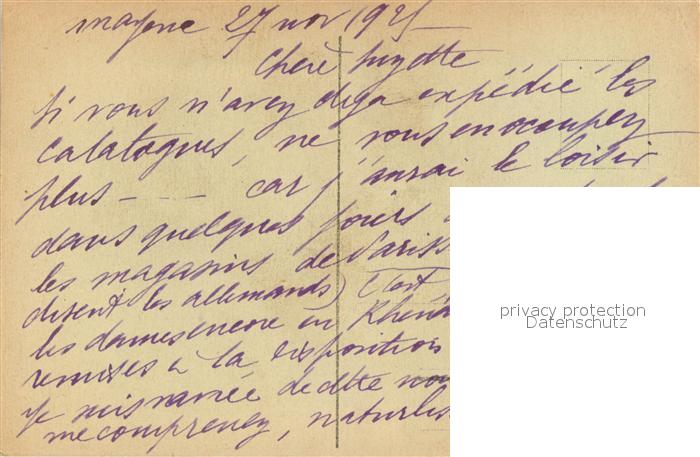 mayence 27 nov 1925
Chère Suzette
Si vous n'avez déja expédié les
catalogues, ne vous en occupez
plus - - - car j'aurai le loisir
dans quelques jours
les magasins de Paris
disent les allemands) C'est
les dames encore en
remises à la disposition
Je suis navrée de cette
me comprenez,
privacy protection
Datenschutz